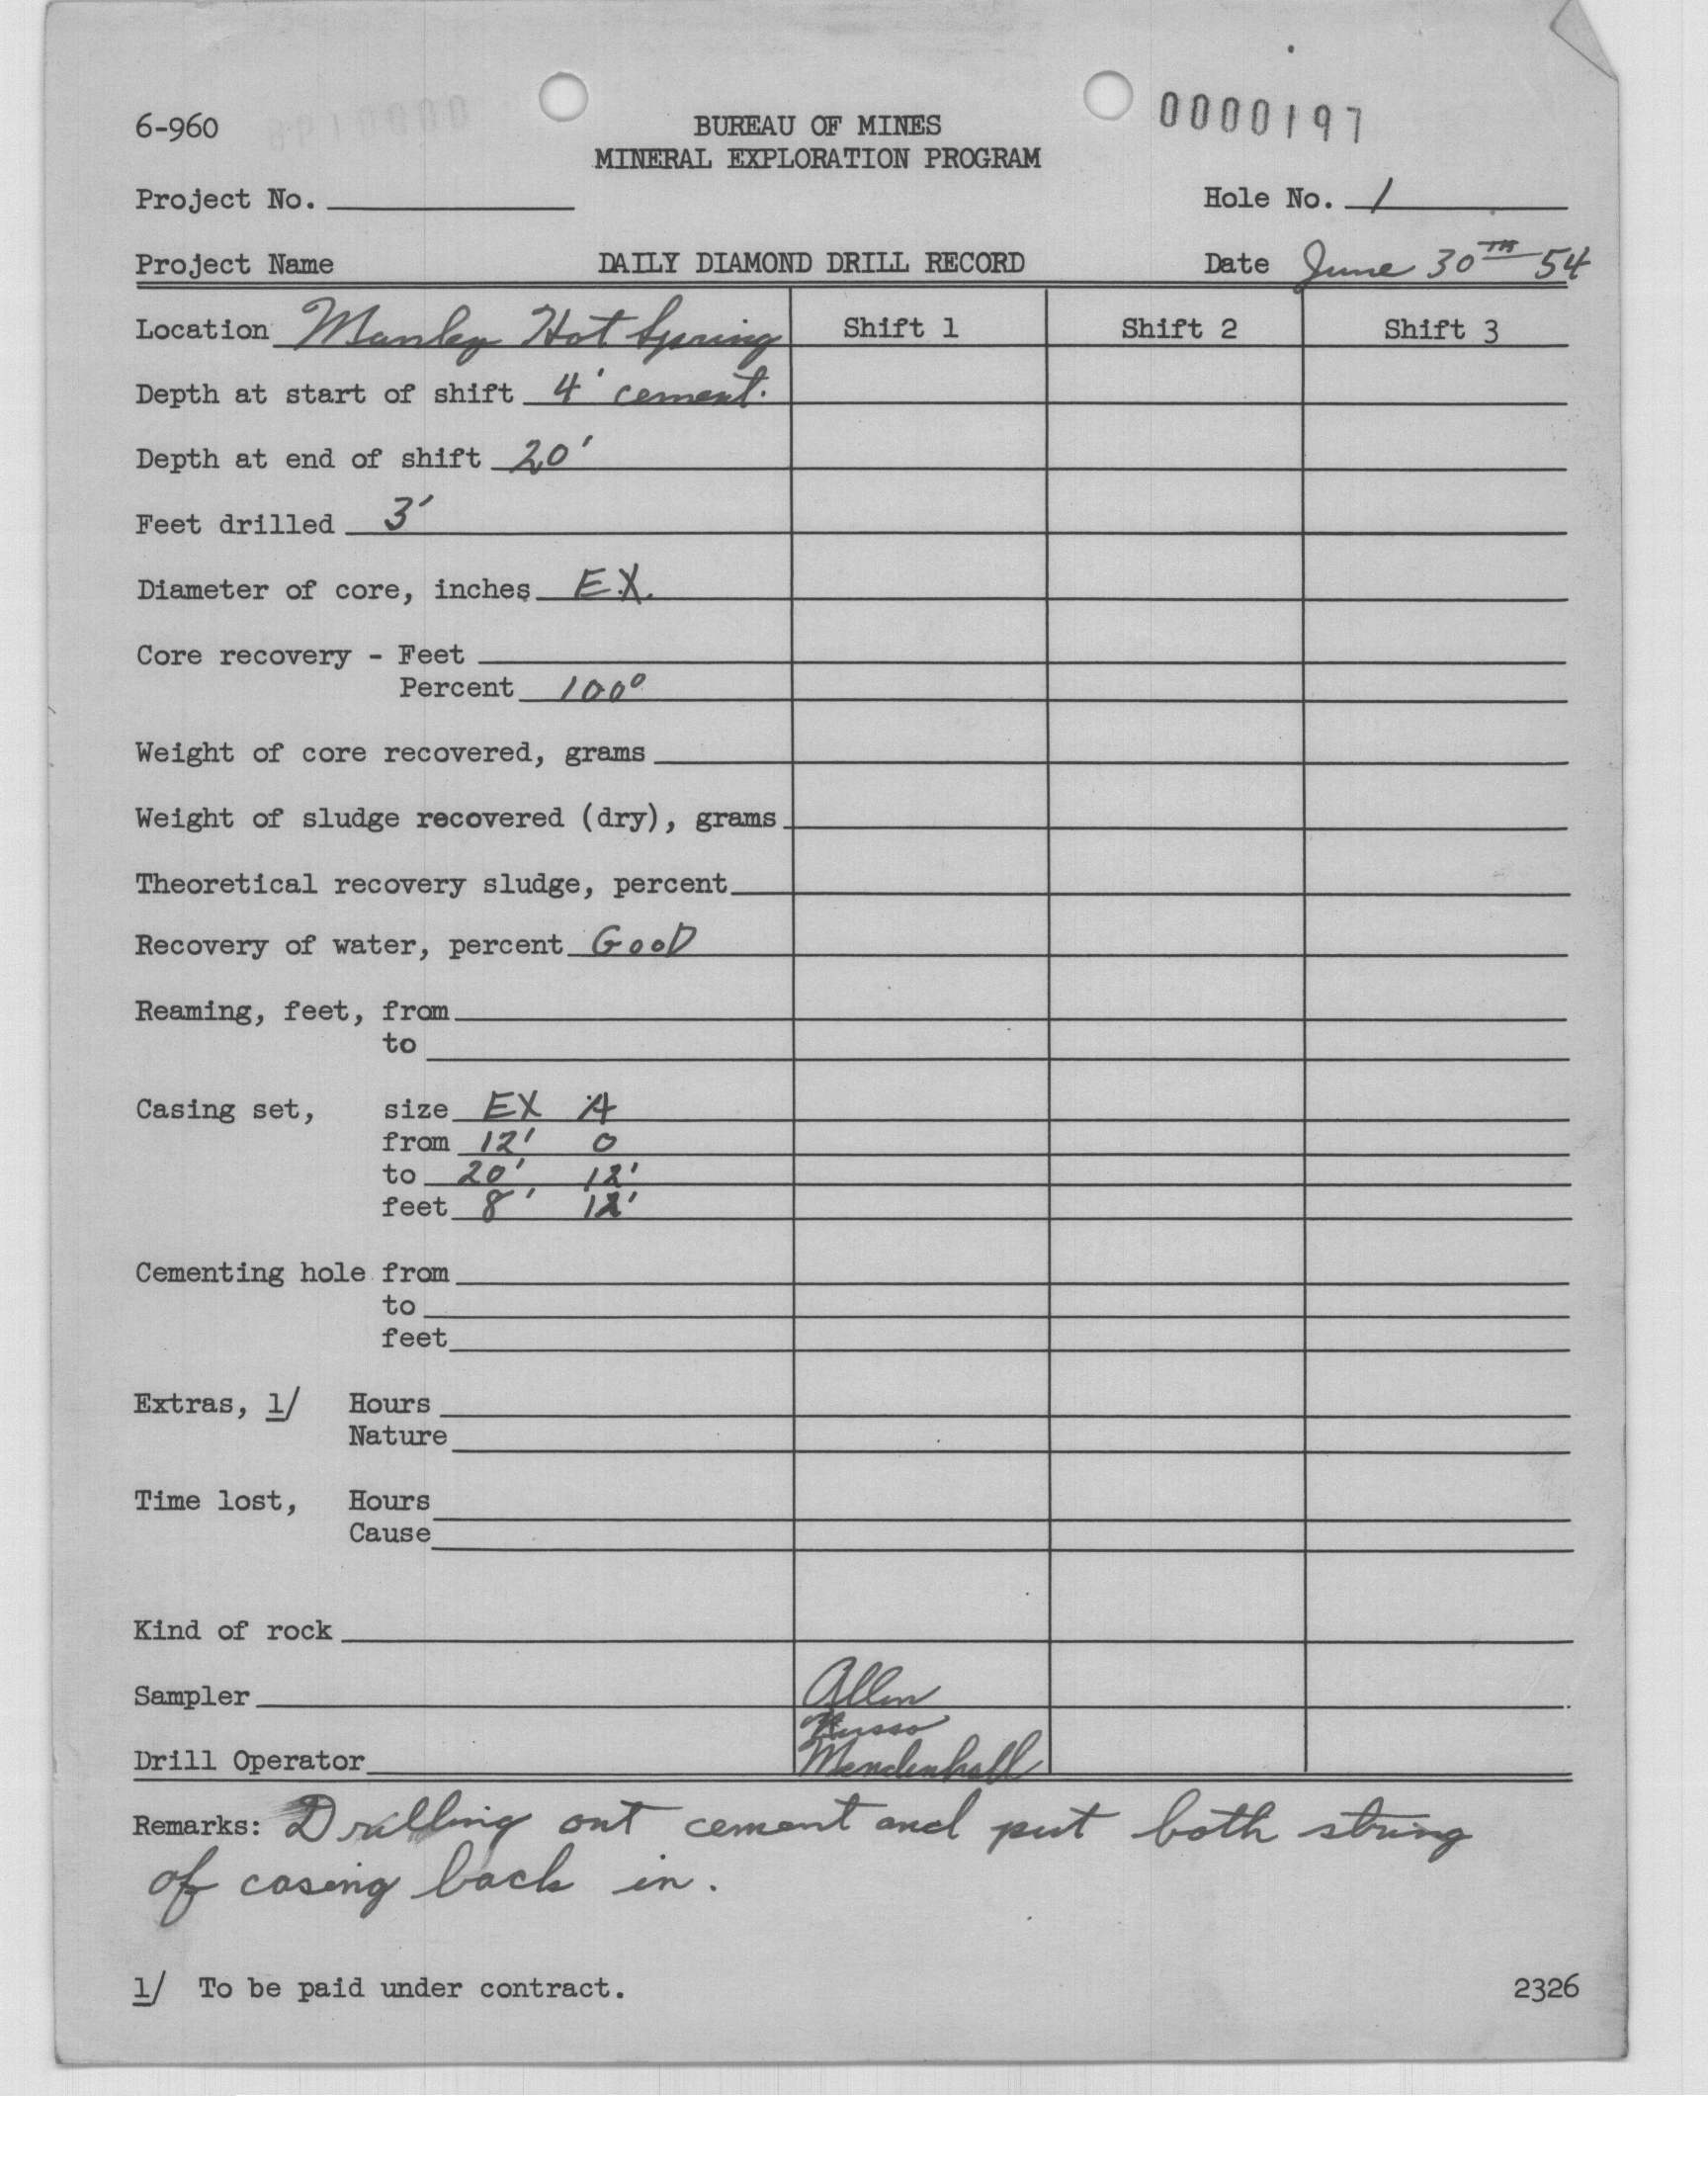 6-960
BUREAU OF MINES
0000197
MINERAL EXPLORATION PROGRAM
Project No.
Hole No. 1
Project Name DAILY DIAMOND DRILL RECORD Date June 30TH 54
Location Manley Hot Spring Shift 1 Shift 2 Shift 3
Depth at start of shift 4' cement.
Depth at end of shift 20'
Feet drilled 3'
Diameter of core, inches E.X.
Core recovery - Feet
Percent 100°
Weight of core recovered, grams
Weight of sludge recovered (dry), grams
Theoretical recovery sludge, percent
Recovery of water, percent GooD
Reaming, feet, from
to
Casing set, size EX A
from 12' 0
to 20' 12'
feet 8' 12'
Cementing hole from
to
feet
Extras, 1/ Hours
Nature
Time lost, Hours
Cause
Kind of rock
Sampler Allen
Russo
Drill Operator Mendenhall
Remarks: Drilling out cement and put both string
of casing back in.
1/ To be paid under contract.
2326